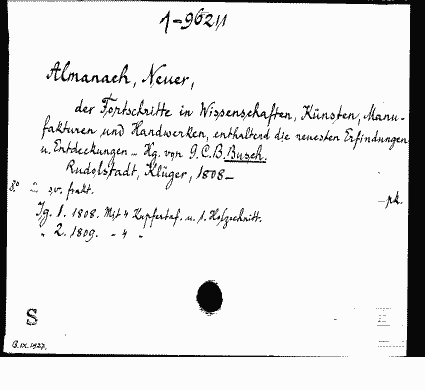 1-9621/1
Almanach, Neuer,
der Fortschritte in Wissenschaften, Künsten, Manu-
fakturen und Handwerken, enthaltend die neuesten Erfindungen
u. Entdeckungen - Hg. von G.C.B. Busch.
Rudolstadt, Klüger, 1808-
8°
-pk.
Jg. 1. 1808. Mit 4 Kupfertaf. u. 1. Holzschnitt.
" 2. 1809. - 4 -
S